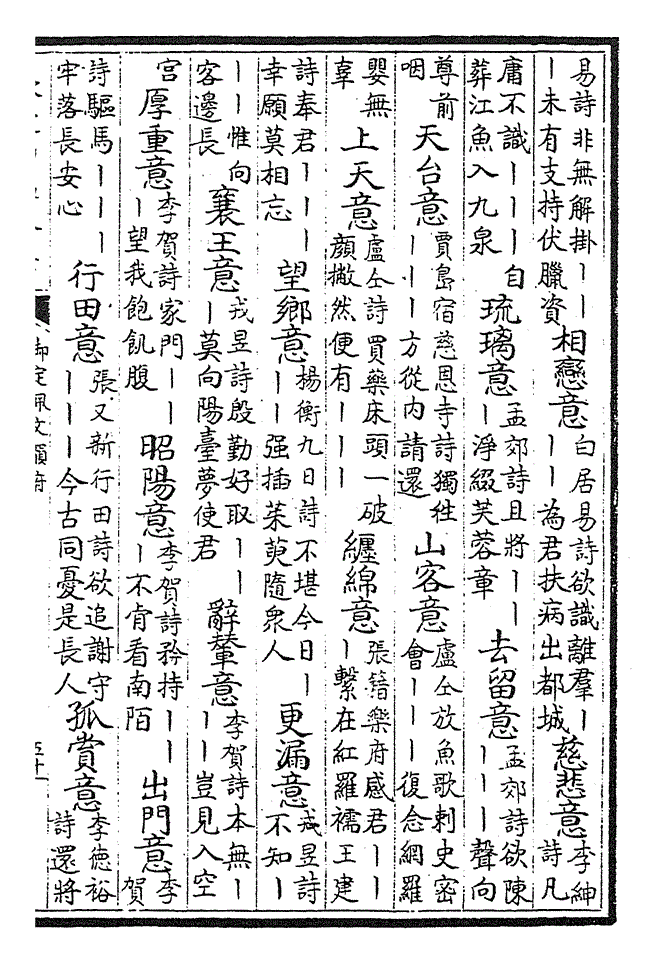 易詩非無解掛丨丨丨未有支持伏臘資 相戀意 白居易詩欲識離羣丨丨丨為君扶病出都城 慈悲意 李紳詩凡
庸不識丨丨丨自葬江魚入九泉 琉璃意 孟郊詩且將丨丨丨淨綴芙蓉章 去留意 孟郊詩欲陳丨丨丨聲向
尊前咽 天台意 賈島宿慈恩寺詩獨往丨丨丨方從內請還 山客意 盧仝放魚歌刺史密會丨丨丨復念網羅
嬰無辜 上天意 盧仝詩買藥床頭一破顏撇然便有丨丨丨 纏綿意 張籍樂府感君丨丨丨繫在紅羅襦王建
詩奉君丨丨丨幸願莫相忘 望鄉意 楊衡九日詩不堪今日丨丨丨强插茱萸隨衆人 更漏意 戎昱詩不知丨
丨丨惟向客邊長 襄王意 戎昱詩殷勤好取丨丨丨莫向陽臺夢使君 辭輦意 李賀詩本無丨丨丨豈見入空
宮 厚重意 李賀詩家門丨丨丨望我飽飢腹 昭陽意 李賀詩矜持丨丨丨不肯看南陌 出門意 李賀
詩驅馬丨丨丨牢落長安心 行田意 張又新行田詩欲追謝守丨丨丨今古同憂是長人 孤賞意 李德裕詩還將
御定佩文韻府